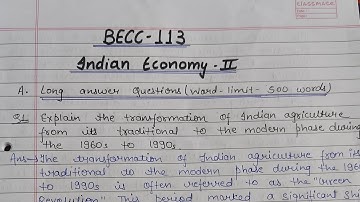 CLASSMATE
BECC-113
Indian Economy-II
A. Long answer Questions (Word-limit- 500 words)
Q.1 Explain the transformation of Indian agriculture
from its traditional to the modern phase during
the 1960s to 1990s.
Ans→ The transformation of Indian agriculture from its
traditional to the modern phase during the 1960
to 1990s is often referred to as the "Green
Revolution" This period marked a significant shi